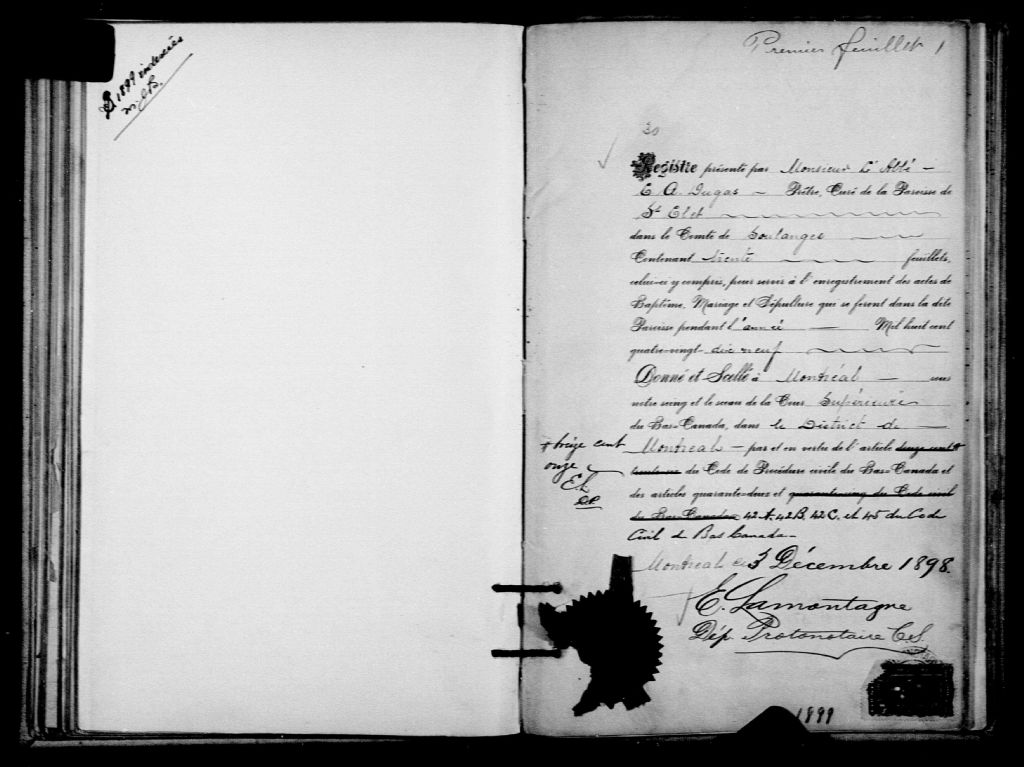 1899 indexés
Premier feuillet 1
30
Registre présenté par Monsieur L'Abbé
E A. Dugas Prêtre, Curé de la Paroisse de
St Clet
dans le Comté de Soulanges
Contenant trente feuillets,
celui-ci y compris, pour servir à l'enregistrement des actes de
Baptême, Mariage et Sépulture qui se feront dans la dite
Paroisse pendant l'année Mil huit cent
quatre-vingt-dix neuf
Donné et Scellé à Montréal sous
notre seing et le sceau de la Cour Supérieure
du Bas-Canada, dans le District de
Montreal par et en vertu de l'article douze cent
trente-six du Code de Procédure civile du Bas-Canada et
des articles quarante-deux et quarante-cinq du Code civil
du Bas-Canada 42A. 42B. 42C. et 45 du Code
Civil du Bas Canada
treize cent
onze
E L
D.P.
Montreal ce 3 Décembre 1898.
E. Lamontagne
Dép Protonotaire C.S.
1899